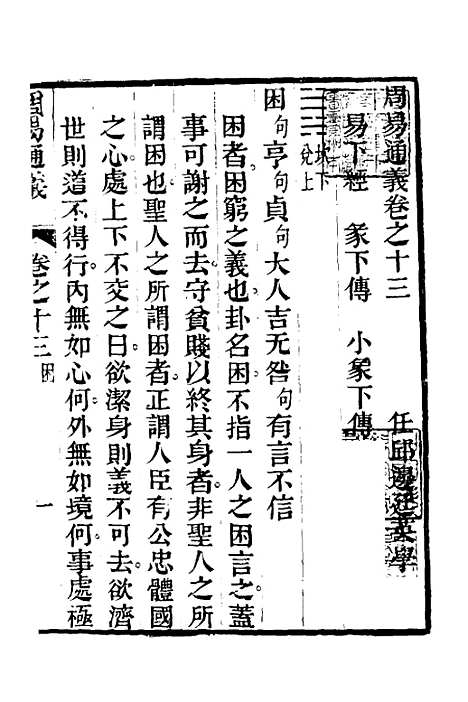 周易通義卷之十三
任邱邊廷英學
易下經 彖下傳 小象下傳
坎下
兌上
困句亨句貞句大人吉无咎句有言不信
困者困窮之義也卦名困不指一人之困言之蓋
事可謝之而去守貧賤以終其身者非聖人之所
謂困也聖人之所謂困者正謂人臣有公忠體國
之心處上下不交之日欲潔身則義不可去欲濟
世則道不得行內無如心何外無如境何事處極
周易通義 卷之十三 困 一